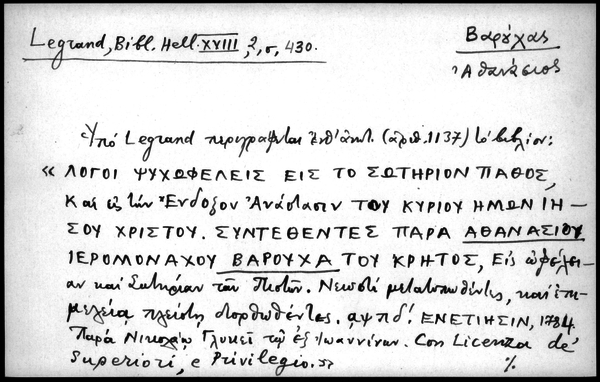 Legrand, Bibl. Hell. XVIII, 2, σ, 430.
Βαρούχας
Ἀθανάσιος
Ὑπό Legrand περιγράφεται (ἀριθ. 1137) τὸ βιβλίον:
« ΛΟΓΟΙ ΨΥΧΩΦΕΛΕΙΣ ΕΙΣ ΤΟ ΣΩΤΗΡΙΟΝ ΠΑΘΟΣ,
Και εις την Ἔνδοξον Ἀνάστασιν ΤΟΥ ΚΥΡΙΟΥ ΗΜΩΝ ΙΗ–
ΣΟΥ ΧΡΙΣΤΟΥ. ΣΥΝΤΕΘΕΝΤΕΣ ΠΑΡΑ ΑΘΑΝΑΣΙΟΥ
ΙΕΡΟΜΟΝΑΧΟΥ ΒΑΡΟΥΧΑ ΤΟΥ ΚΡΗΤΟΣ, Εἰς ὠφέλει–
αν καὶ Σωτηρίαν τῶν Πιστῶν. Νεωστὶ μετατυπωθέντες, καὶ ἐπι–
μελείᾳ πλείστῃ διορθωθέντες. ᾳψπδ΄. ΕΝΕΤΙΗΣΙΝ, 1784.
Παρὰ Νικολάῳ Γλυκεῖ τῷ ἐξ Ἰωαννίνων. Con Licenza de'
Superiori, e Privilegio. 
%